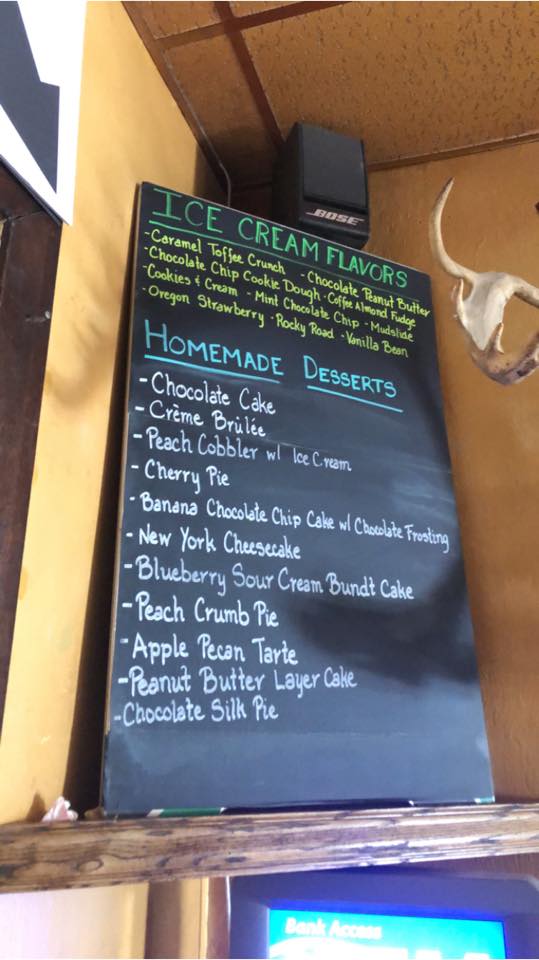 BOSE
ICE CREAM FLAVORS
-Caramel Toffee Crunch -Chocolate Peanut Butter
-Chocolate Chip Cookie Dough -Coffee Almond Fudge
-Cookies & Cream - Mint Chocolate Chip - Mudslide
-Oregon Strawberry -Rocky Road -Vanilla Bean
HOMEMADE DESSERTS
-Chocolate Cake
-Crème Brûlée
-Peach Cobbler w/ Ice Cream
- Cherry Pie
- Banana Chocolate Chip Cake w/ Chocolate Frosting
-New York Cheesecake
-Blueberry Sour Cream Bundt Cake
-Peach Crumb Pie
-Apple Pecan Tarte
-Peanut Butter Layer Cake
-Chocolate Silk Pie
Bank Access